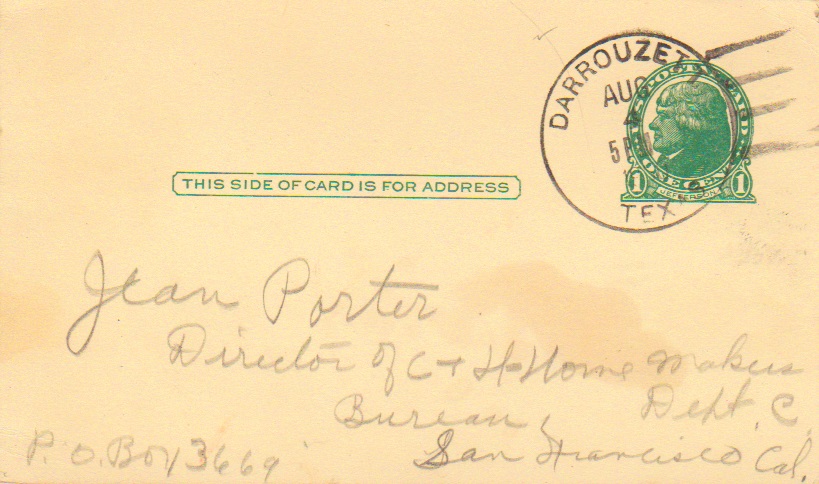 DARROUZETT
AUG
4
5 PM
TEX.
U.S. POSTAL CARD
ONE CENT
1 JEFFERSON 1
THIS SIDE OF CARD IS FOR ADDRESS
Jean Porter
Director of C + H Home Makers
Bureau, Dept. C
P.O. Box 3669 San Francisco Cal.